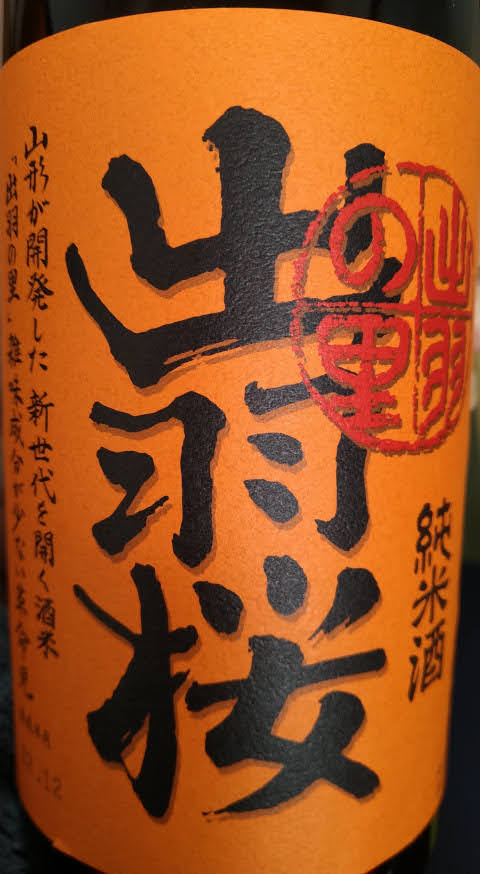 出羽の里
純米酒
出羽桜
山形が開発した 新世代を開く酒米
「出羽の里」雑味成分が少ない革命児
.12